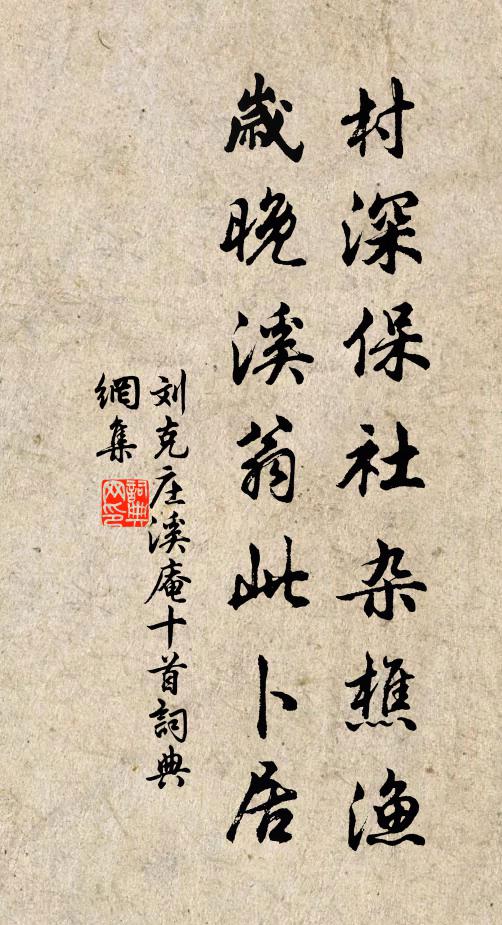 村深保社杂樵渔
歲晚溪翁此卜居
刘克庄溪庵十首詞典
網集
詞典
网印